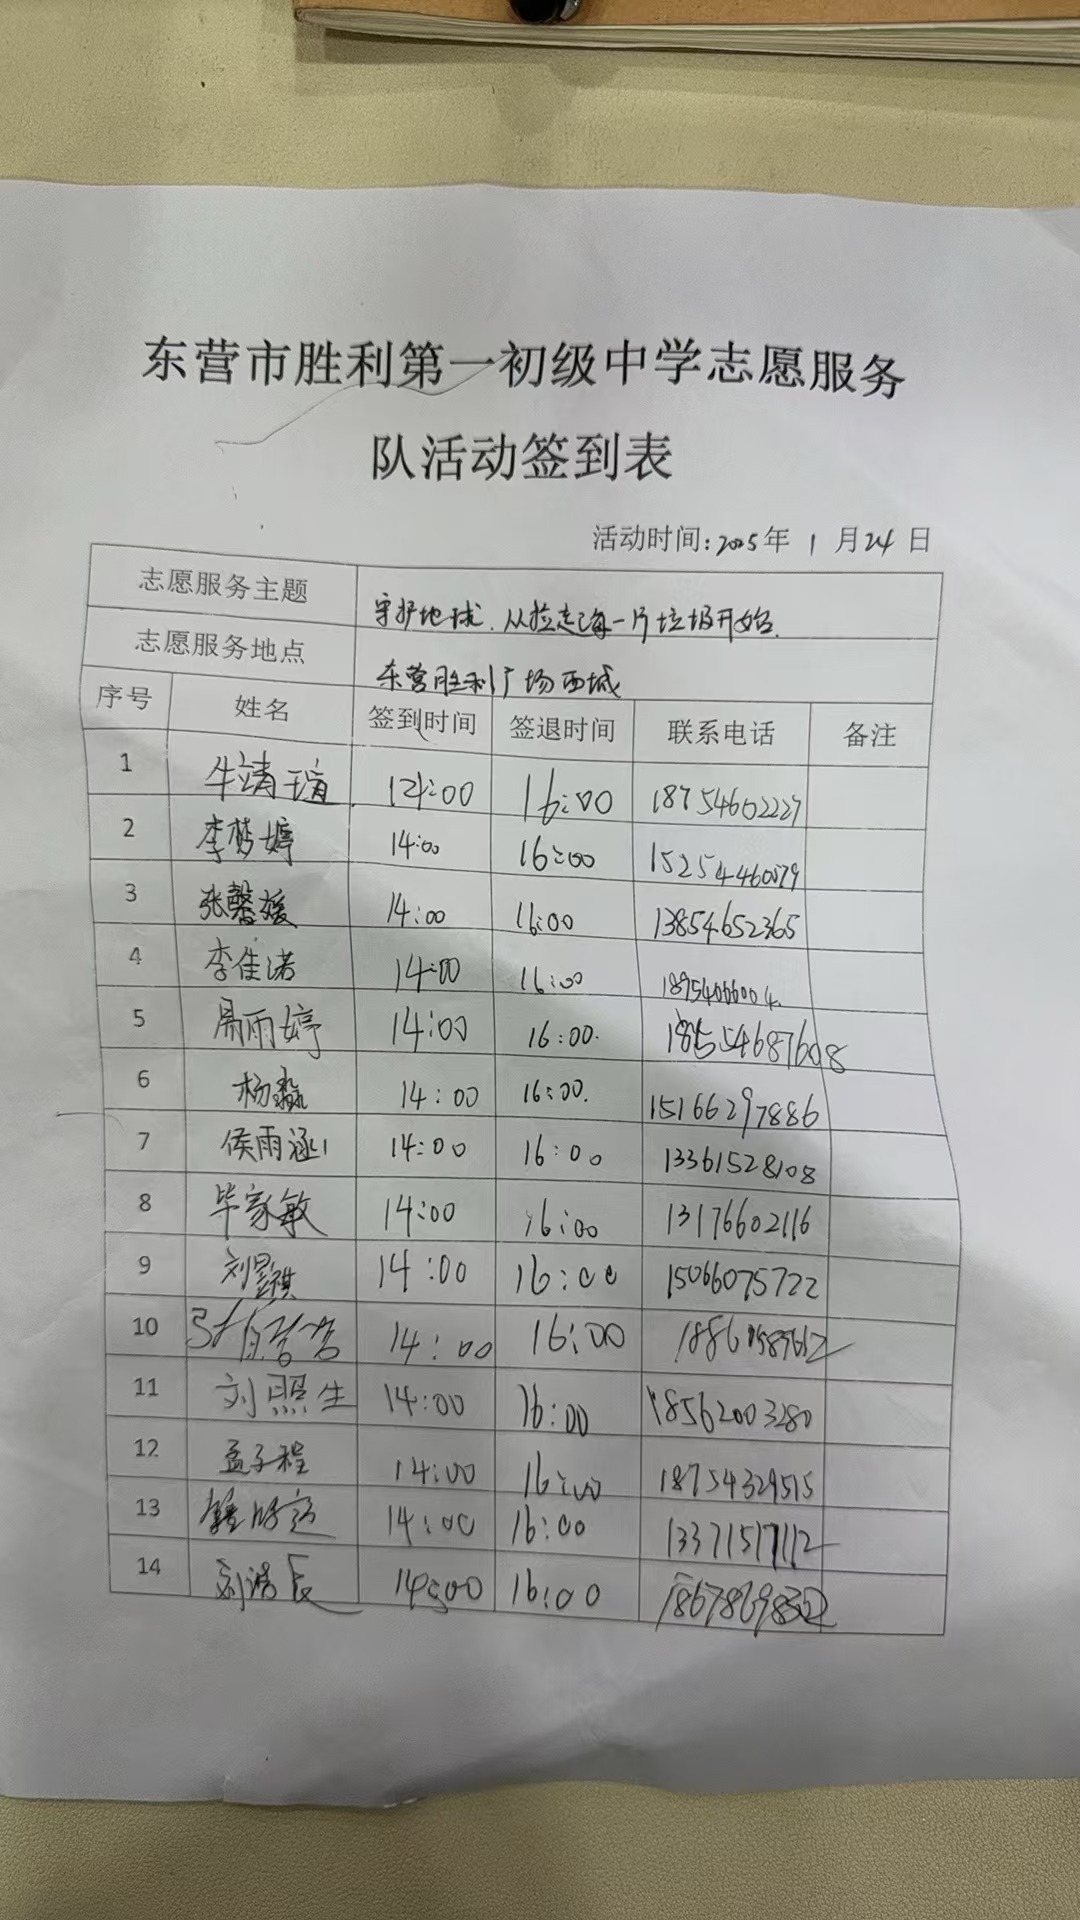 东营市胜利第一初级中学志愿服务
队活动签到表
活动时间:2025年 1 月24 日
志愿服务主题 守护地球.从捡起每一片垃圾开始.
志愿服务地点 东营胜利广场西城
序号 姓名 签到时间 签退时间 联系电话 备注
1 牛靖瑄 14:00 16:00 18754602227
2 李梦婷 14:00 16:00 15254460579
3 张馨媛 14:00 16:00 13854652365
4 李佳诺 14:00 16:00
5 周雨婷 14:00 16:00. 18554687608
6 杨淼 14:00 16:00. 15166297886
7 侯雨涵 14:00 16:00 13361528108
8 毕家敏 14:00 16:00 13176602116
9 刘昱祺 14:00 16:00 15066075722
10 14:00 16:00
11 刘照生 14:00 16:00 18562003280
12 孟子程 14:00 16:00 18754329515
13 14:00 16:00 13371517112
14 14:00 16:00